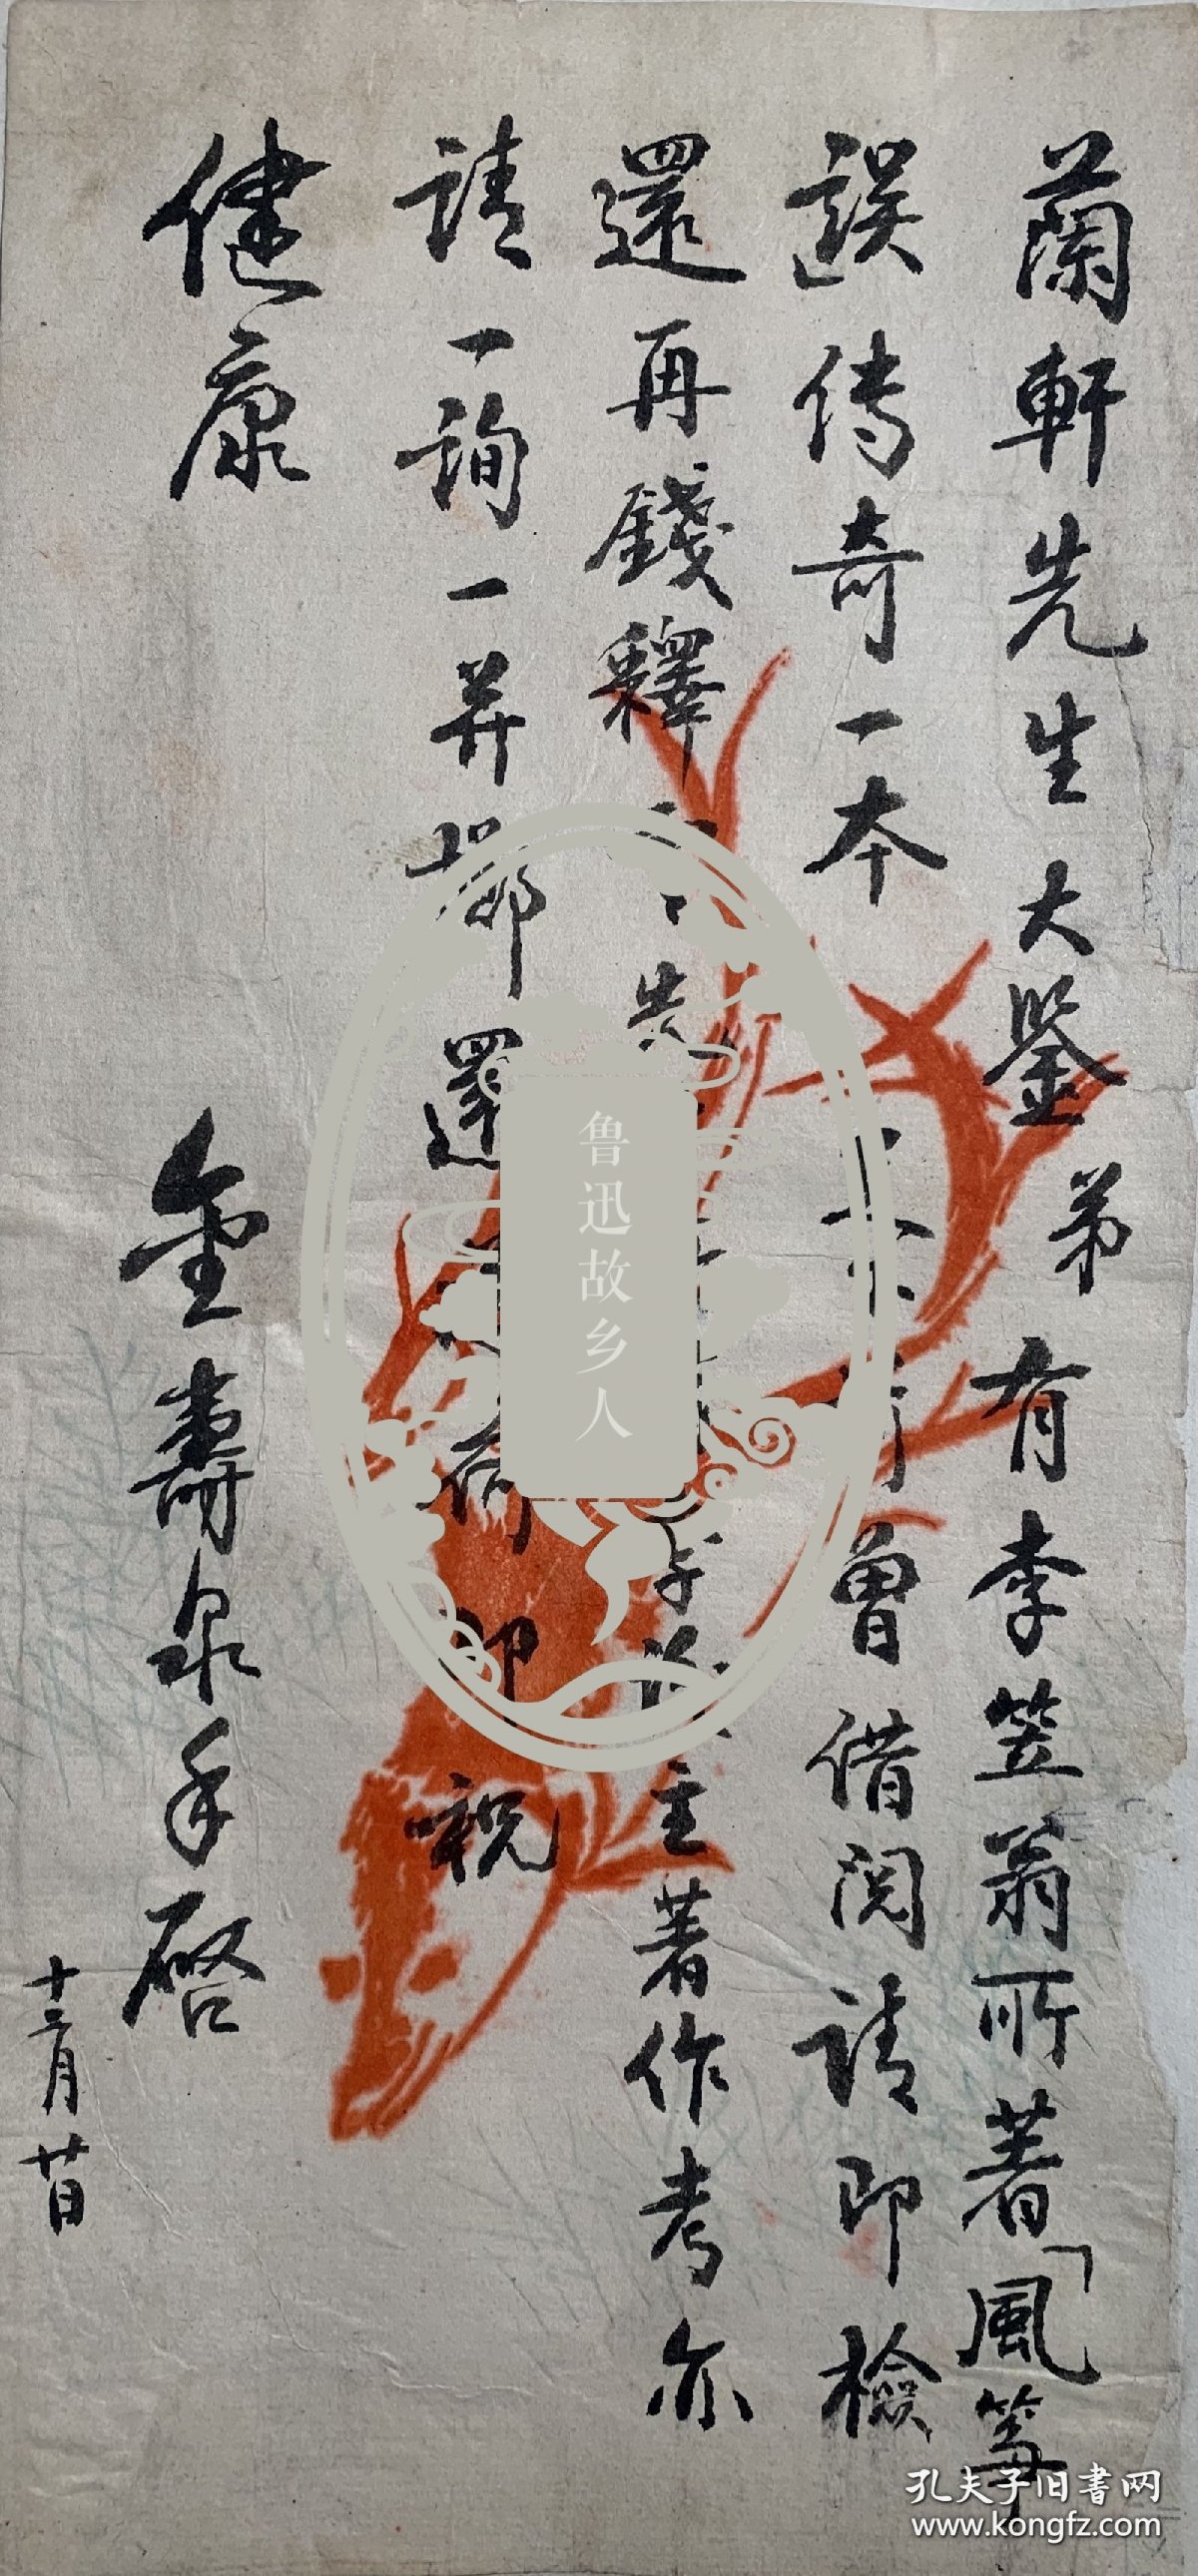 蘭軒先生大鑒 弟有李笠翁所著「風箏
誤」传奇一本 曾借閲请即檢
還再錢釋 先 主著作考亦
请一詢一并擲還 荷 即祝
健康
金壽泉手啓
十二月廿日
鲁迅故乡人
孔夫子旧书网
www.kongfz.com